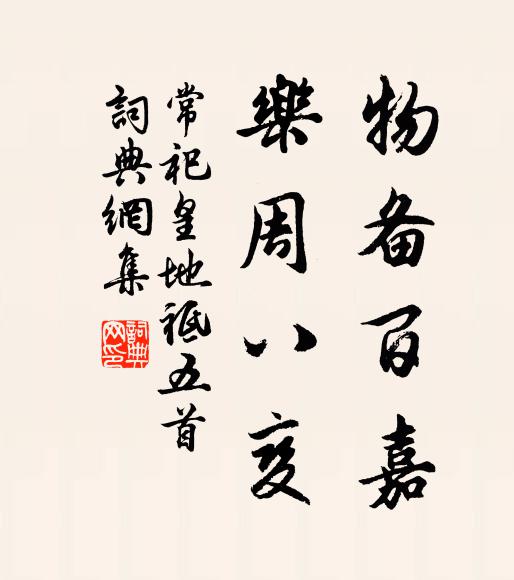 物备百嘉
樂周八变
常祀皇地祗五首
詞典網集
詞典
网印